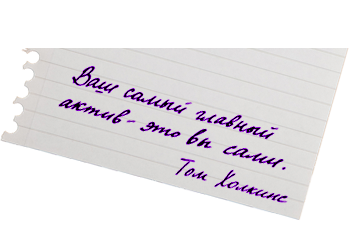 Ваш самый главный
актив - это вы сами.
Том Хопкинс